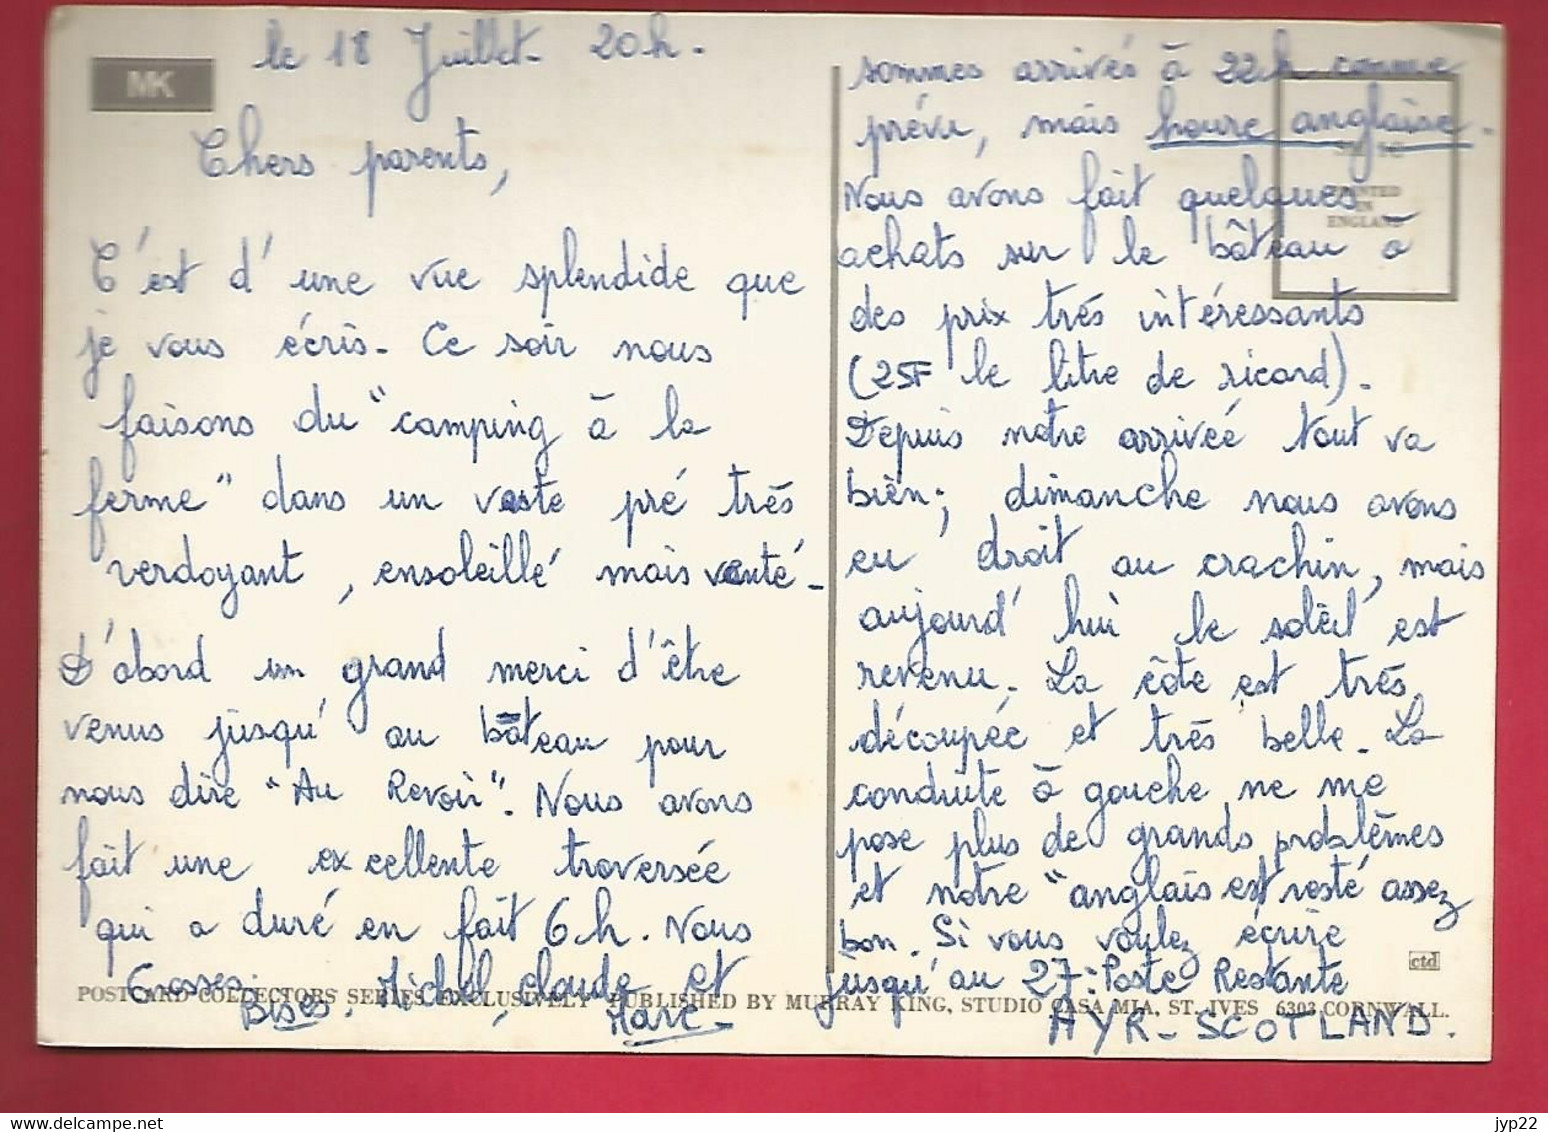 MK
le 18 Juillet - 20h.
Chers parents,
C'est d'une vue splendide que
je vous écris. Ce soir nous
faisons du "camping à la
ferme" dans un vaste pré très
verdoyant, ensoleillé mais venté.
D'abord un grand merci d'être
venus jusqu'au bâteau pour
nous dire "Au Revoir". Nous avons
fait une excellente traversée
qui a duré en fait 6h. Nous
Grosses
Bises, Michel, claude et
Marc -
sommes arrivés à 22h comme
prévu, mais heure anglaise.
Nous avons fait quelques
achats sur le bâteau à
des prix très intéressants
(25F le litre de ricard).
Depuis notre arrivée tout va
bien; dimanche nous avons
eu droit au crachin, mais
aujourd'hui le soleil est
revenu. La côte est très
découpée et très belle. La
conduite à gauche ne me
pose plus de grands problèmes
et notre "anglais est resté assez
bon. Si vous voulez écrire
jusqu'au 27: Poste Restante
AYR - SCOTLAND.
PRINTED
IN
ENGLAND
ctd
POSTCARD COLLECTORS SERIES EXCLUSIVELY PUBLISHED BY MURRAY KING, STUDIO CASA MIA, ST. IVES 6303 CORNWALL.
jyp22